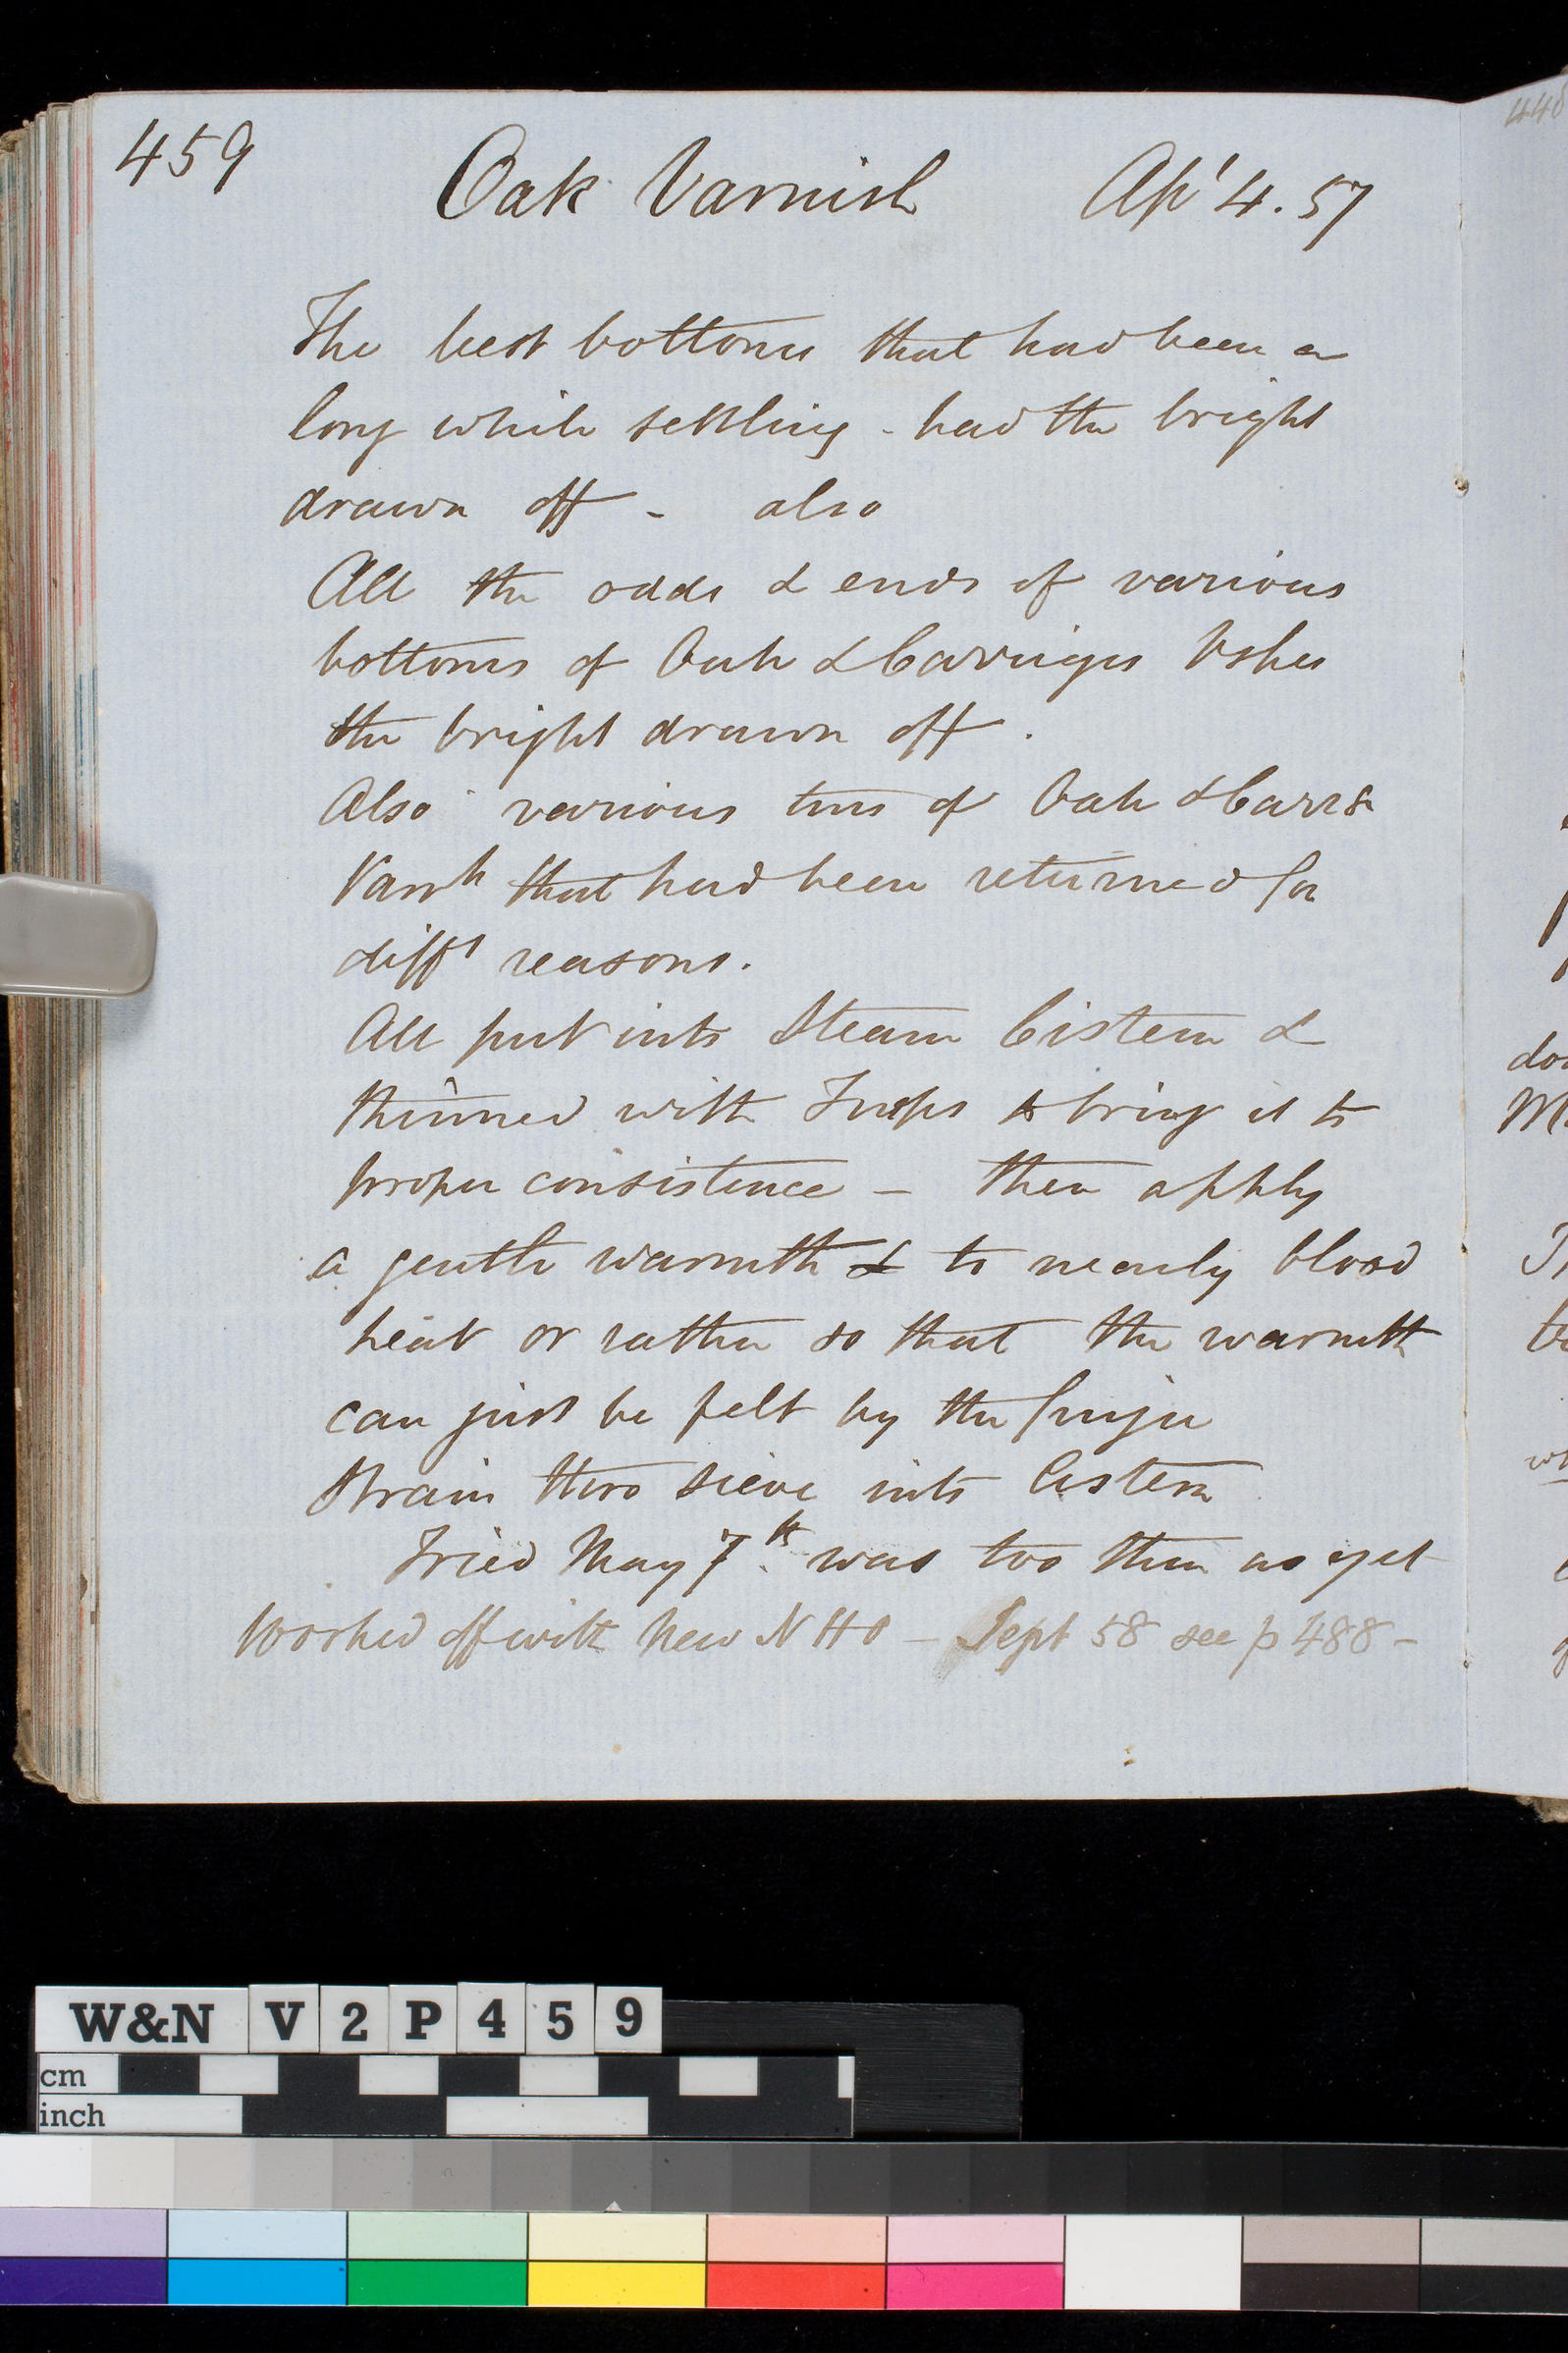 459
Oak Varnish Apl 4. 57
The best bottoms that had been a
long while settling - had the bright
drawn off - also
All the odds & ends of various
bottoms of Oak & Carriages Vshes
the bright drawn off.
Also various tins of Oak & Carre
Varnh that had been returned for
difft reasons.
All put into Steam Cistern &
thinned with Turps to bring it to
proper consistence - then apply
a gentle warmth & to nearly blood
heat or rather so that the warmth
can just be felt by the finger
Strain thro sieve into Cistern
Tried May 7th. was too thin as yet
Worked off with New N H O - Sept 58 see p 488 -
W&N V 2 P 4 5 9
cm
inch